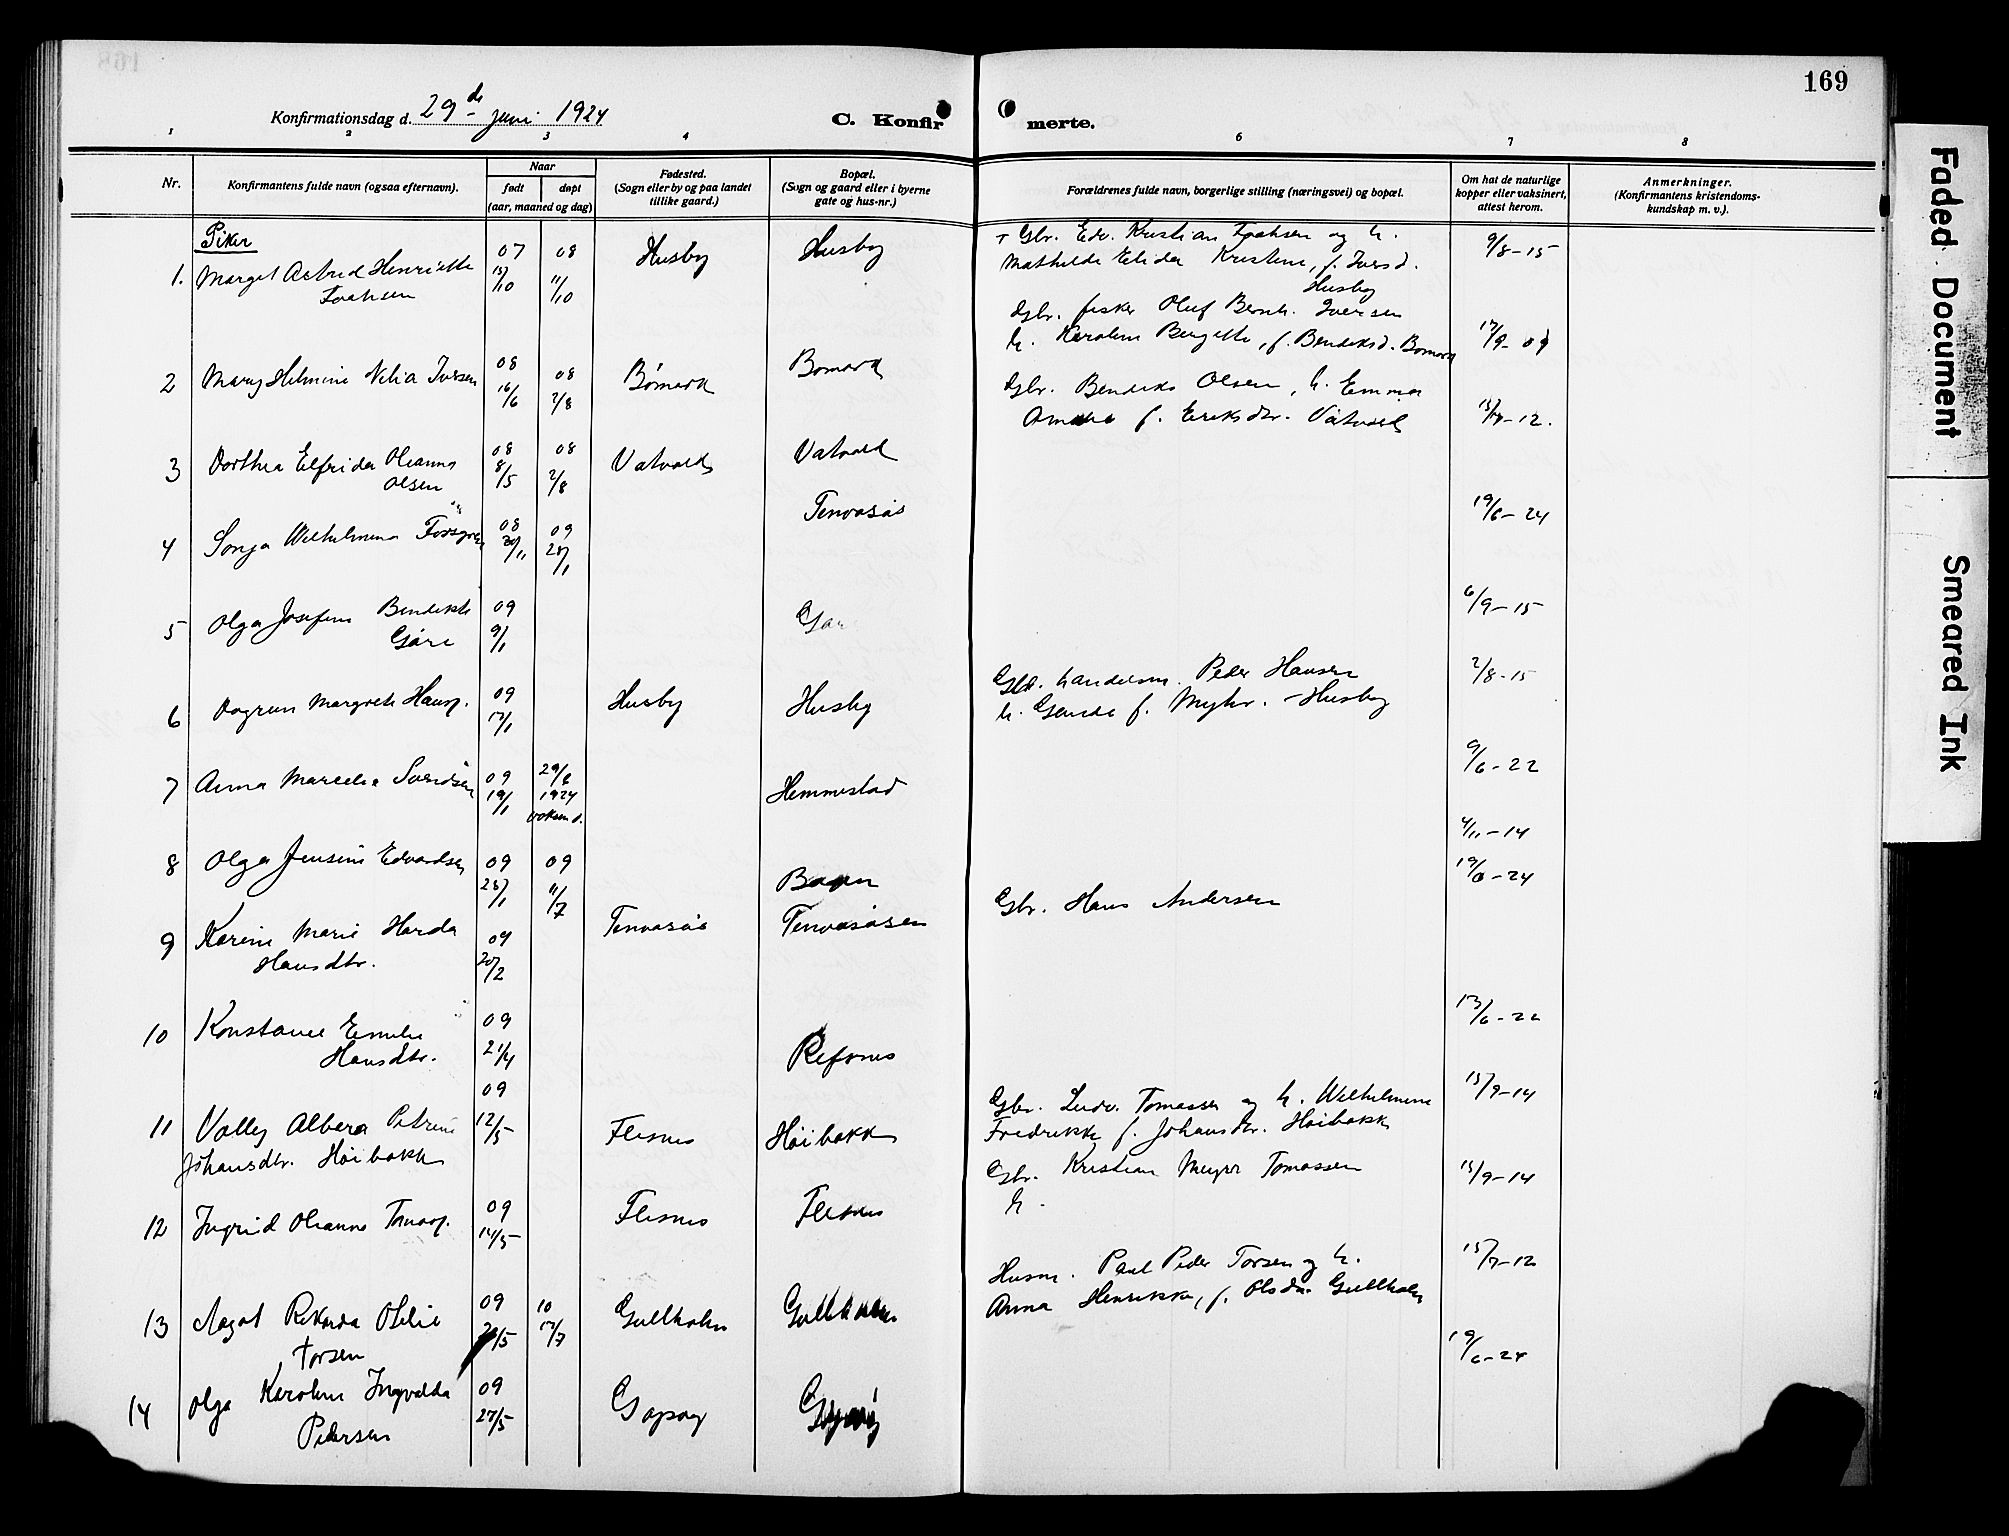 169
Konfirmationsdag d. 29de juni 1924
C. Konfirmerte.
1 2 3 4 6 7 8
Nr.
Konfirmantens fulde navn (ogsaa efternavn).
Naar
født døpt
(aar, maaned og dag)
Fødested.
(Sogn eller by og paa landet
tillike gaard.)
Bopæl.
(Sogn og gaard eller i byerne
gate og hus-nr.)
Forældrenes fulde navn, borgerlige stilling (næringsvei) og bopæl.
Om hat de naturlige
kopper eller vaksinert,
attest herom.
Anmerkninger.
(Konfirmantens kristendoms-
kundskap m. v.).
Piker
1. Margit Astrid Henriette 07 15/10 08 11/10 Husby Husby Gbr. Edv. Kristian og h. 9/8-15
Mathilde Elida Kristine, f. Iversd.
Husby
2 Mary Helmine Iversen 08 16/6 08 2/8 Bømark Bomark Gbr. fisker Oluf Bernh. Iversen 17/9-09
h. Karoline Bergitte, f. Bendiksd. Bomark
3 Dorthea Elfrida Oleanna 08 8/5 08 2/8 Vatvold Vatvold Gbr. Bendiks Olsen, h. Emma 15/7-12.
Olsen
f. Eriksdtr. Vatvold
4 Sonja Wilhelmina 08 20/11 09 28/1 19/6-24
5 Olga Josefine Bendikte 09 9/1 6/9-15
Gåre
6 Dagrun Margrete Hansen 09 17/1 Husby Husby Gbr. handelsm. Peder Hansen 2/8-15
h. f. Myhr. - Husby
7 Anna Marcelia 09 19/1 29/6 1924 voksen d. Hemmestad 9/6-22
8 Olga Jensine Edvardsen 09 28/1 09 11/7 4/11-14
9 Karine Marie Harda 09 20/2 Gbr. Hans Andersen 19/6-24
Hansdtr.
10 Konstanse Emilie 09 21/4 Refsnes 13/6-22
Hansdtr.
11 Valley Albera Petrine 09 12/5 Flesnes Høibakk Gbr. Ludv. Tomassen og h. Wilhelmine 15/9-14
Johansdtr. Høibakk
Fredrikke f. Johansdtr. Høibakk
12 Ingrid Oleanna 09 14/5 Flesnes Flesnes Gbr. Kristian Meyer Tomassen 15/9-14
h.
13 Aagot Rikarda Otelie 09 10 17/7 Gullholm Gullholm Husm. Paul Peder Torsen og h. 15/7-12
Torsen
Anna Henrikke, f. Olsdtr. Gullholm
14 Olga Karoline Ingvalda 09 27/5 19/6-24
Pedersen
Faded Document
Smeared Ink